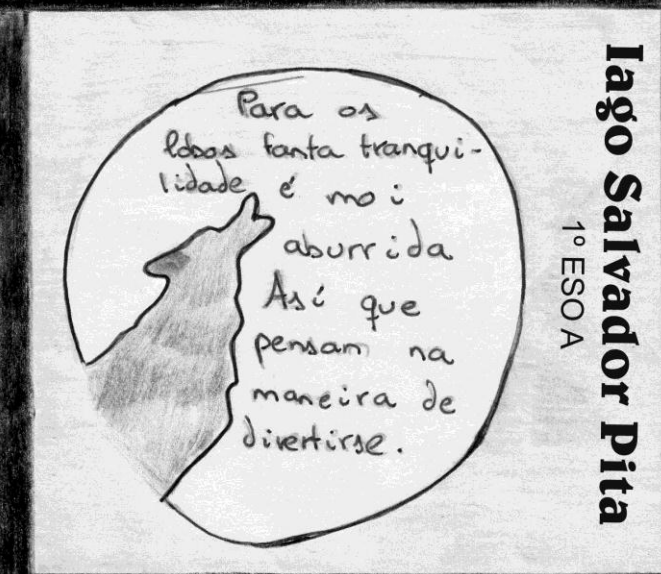 Para os
lobos tanta tranqui-
lidade é moi
aburrida
Así que
pensam na
maneira de
divertirse.
Iago Salvador Pita
1º ESO A